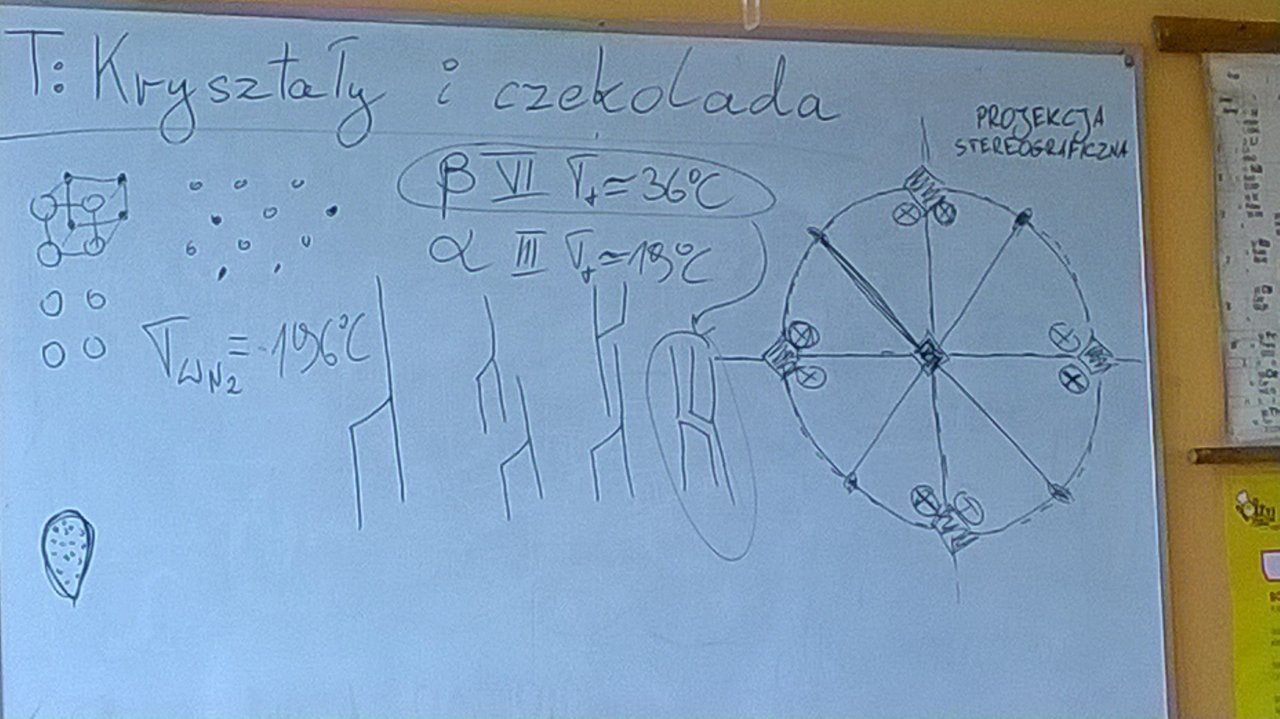 T: Kryształy i czekolada
PROJEKCJA
STEREOGRAFICZNA
β VI Tt ≈ 36°C
α III Tt ≈ 19°C
TWN2 = -196°C